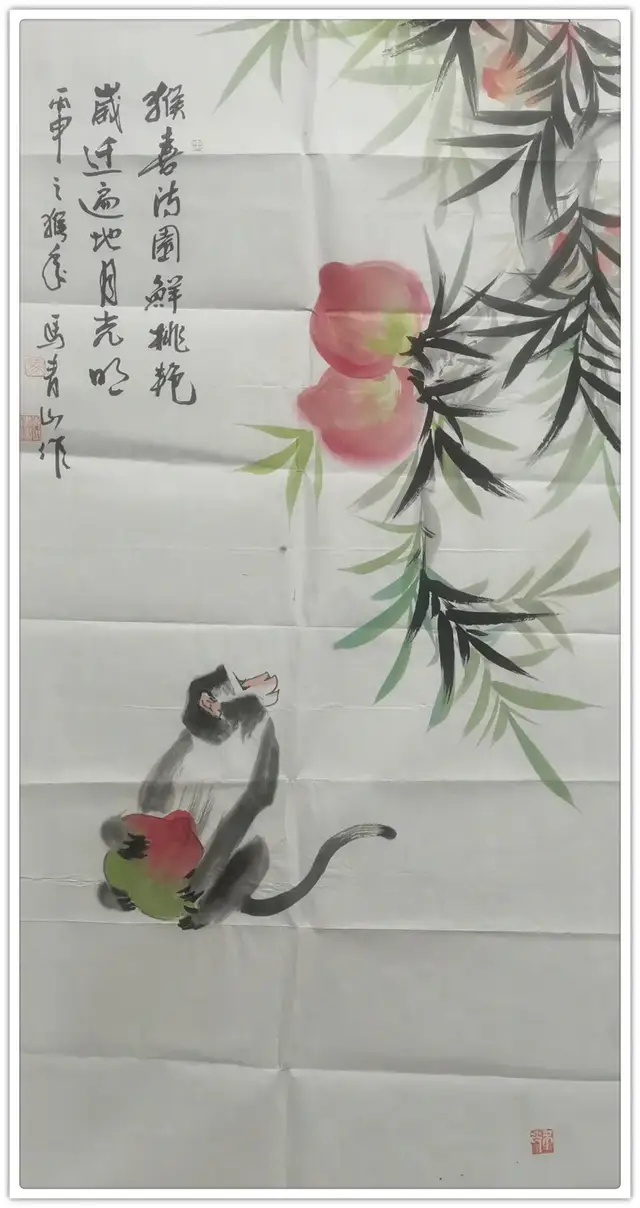 猴喜满園鮮桃艳
歲迁遍地月光明
丙申之猴年 馬青山作